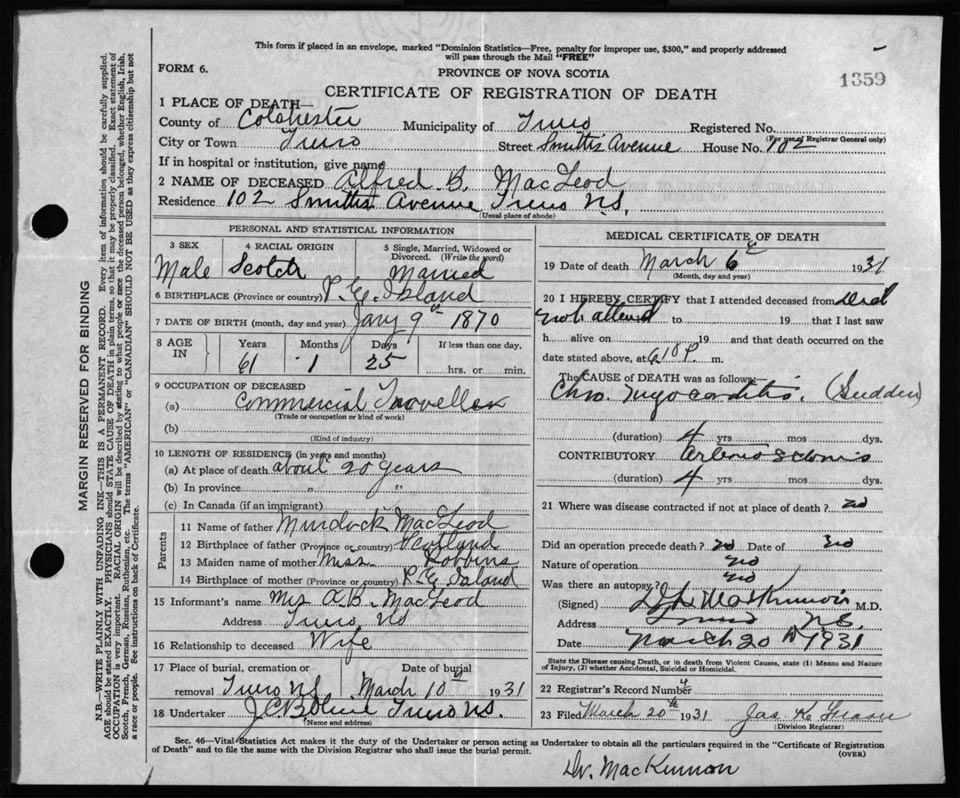 This form if placed in an envelope, marked "Dominion Statistics—Free, penalty for improper use, $300," and properly addressed
will pass through the Mail "FREE"
FORM 6.
PROVINCE OF NOVA SCOTIA
1359
CERTIFICATE OF REGISTRATION OF DEATH
1 PLACE OF DEATH—
County of Colchester Municipality of Truro Registered No.
(For use of Registrar General only)
City or Town Truro Street Smiths Avenue House No. 102
If in hospital or institution, give name
2 NAME OF DECEASED Alfred B. MacLeod
Residence 102 Smiths Avenue Truro N.S.
(Usual place of abode)
PERSONAL AND STATISTICAL INFORMATION
3 SEX 4 RACIAL ORIGIN 5 Single, Married, Widowed or
Divorced. (Write the word)
Male Scotch Married
6 BIRTHPLACE (Province or country) P.E. Island
7 DATE OF BIRTH (month, day and year) Jany 9th 1870
8 AGE IN Years Months Days If less than one day,
61 1 25 hrs. or min.
9 OCCUPATION OF DECEASED
(a) Commercial Traveller
(Trade or occupation or kind of work)
(b)
(Kind of industry)
10 LENGTH OF RESIDENCE (in years and months)
(a) At place of death about 20 years
(b) In province " "
(c) In Canada (if an immigrant)
Parents
11 Name of father Murdock MacLeod
12 Birthplace of father (Province or country) Scotland
13 Maiden name of mother Miss Robbins
14 Birthplace of mother (Province or country) P.E. Island
15 Informant's name Mrs A.B. MacLeod
Address Truro NS
16 Relationship to deceased Wife
17 Place of burial, cremation or Date of burial
removal Truro N.S. March 10th 1931
18 Undertaker Truro N.S.
(Name and address)
MEDICAL CERTIFICATE OF DEATH
19 Date of death March 6th 1931
(Month, day and year)
20 I HEREBY CERTIFY that I attended deceased from Did
not attend to 19 that I last saw
h alive on 19 and that death occurred on the
date stated above, at 6 10 P. m.
The CAUSE of DEATH was as follows:
Chro. Myocarditis. (Sudden)
(duration) 4 yrs mos dys.
CONTRIBUTORY
(duration) 4 yrs mos dys.
21 Where was disease contracted if not at place of death?
Did an operation precede death? no Date of
Nature of operation no
Was there an autopsy? no
(Signed) MacKinnon M.D.
Address Truro N.S.
Date March 20th 1931
State the Disease causing Death, or in death from Violent Causes, state (1) Means and Nature
of Injury, (2) whether Accidental, Suicidal or Homicidal.
22 Registrar's Record Number
23 Filed March 20th 1931 Jas. K.
(Division Registrar)
Sec. 46—Vital Statistics Act makes it the duty of the Undertaker or person acting as Undertaker to obtain all the particulars required in the "Certificate of Registration
of Death" and to file the same with the Division Registrar who shall issue the burial permit.
(OVER)
Dr. MacKinnon
MARGIN RESERVED FOR BINDING
N.B.—WRITE PLAINLY WITH UNFADING INK—THIS IS A PERMANENT RECORD. Every item of information should be carefully supplied.
AGE should be stated EXACTLY. PHYSICIANS should STATE CAUSE OF DEATH in plain terms, so that it may be properly classified. Exact statement of
OCCUPATION is very important. RACIAL ORIGIN will be described by stating to what people or race the deceased person belonged, whether English, Irish,
Scotch, French, German, Russian, Ruthenian, etc. The terms "AMERICAN" or "CANADIAN" SHOULD NOT BE USED as they express citizenship but not
a race or people. See instructions on back of Certificate.